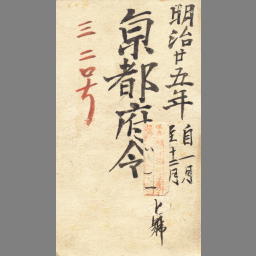 明治廿五年
自一月
至十二月
京都府令
三二〇号